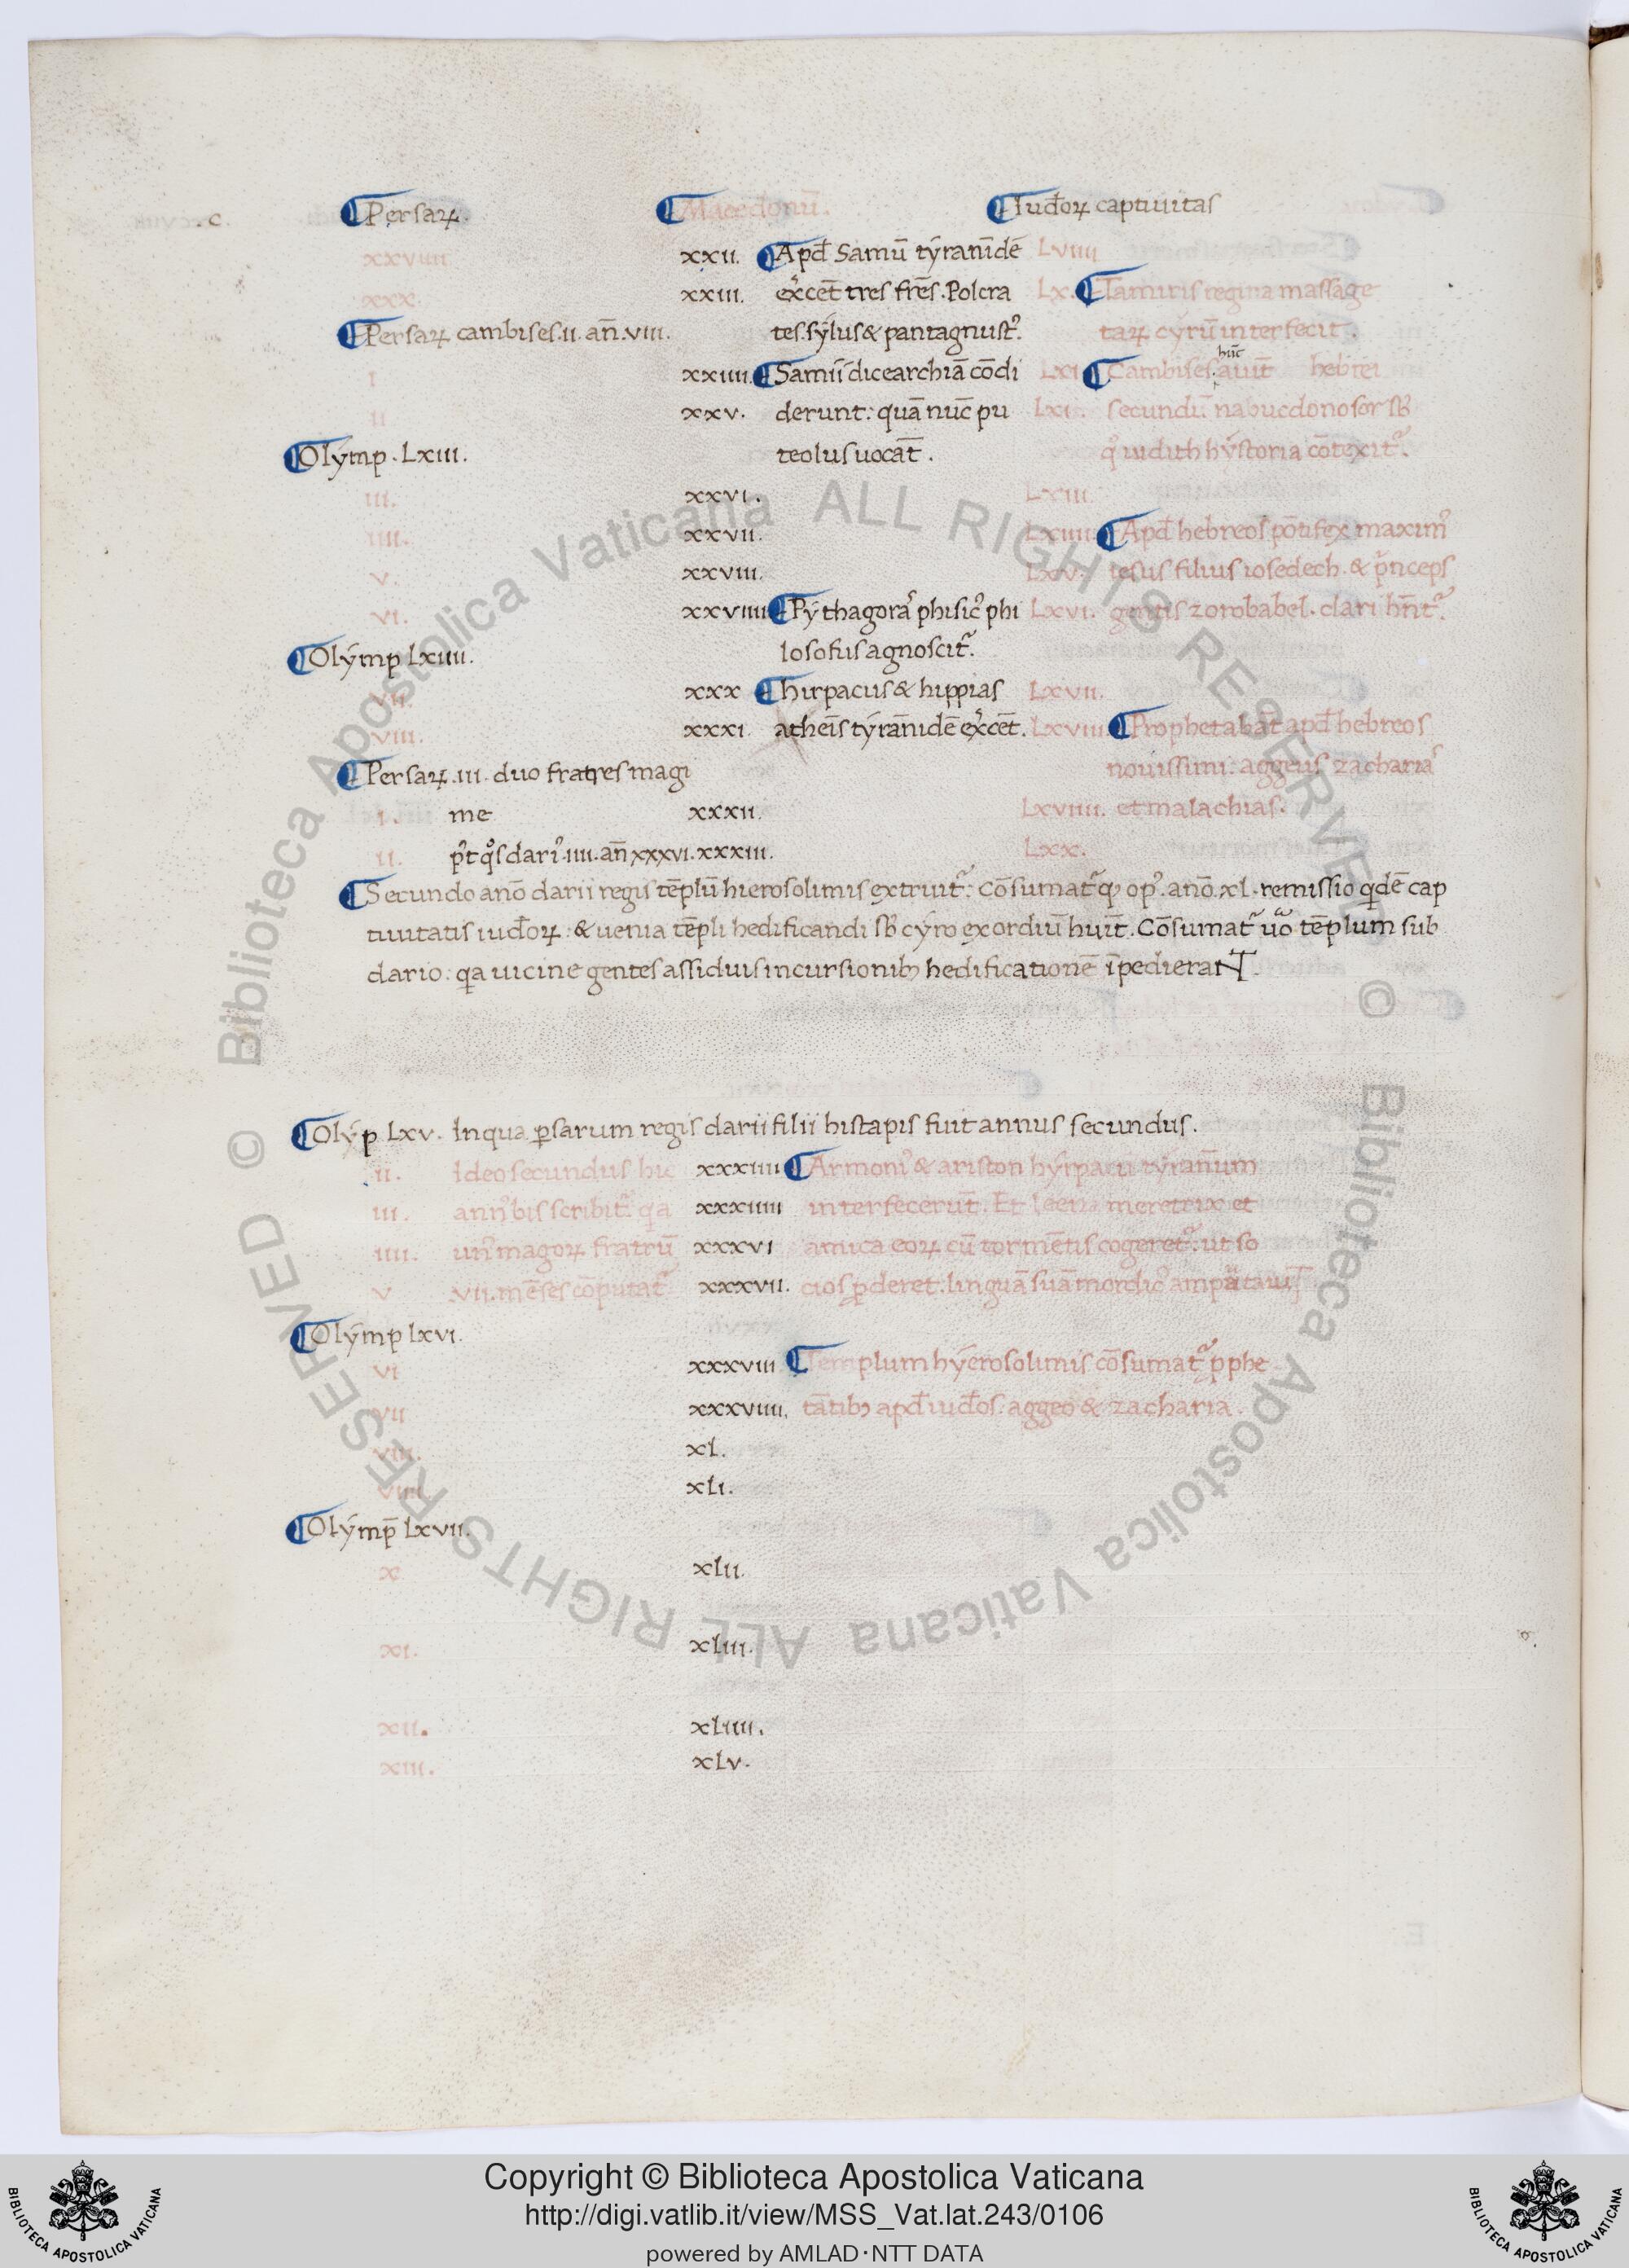 .c. ¶Persaꝝ. ¶Macedonū. ¶Iud̄oꝝ captiuitas
xxviiii xxii. ¶Apd̄ Samū tẏranīdē Lviiii
xxx. xxiii. exͬcēt tres fr̄es. Polcra Lx. ¶Tamiris regina massage
¶Persaꝝ cambises.ii. an̄.viii. tes.sẏlus & pantagnustꝰ. taꝝ cẏrū interfecit.
hūc
i xxiiii. ¶Samii dicearchiā cōdi Lxi ¶Cambisen aiūt hebrei
ii xxv. derunt: quā nūc pu Lxi. secundū nabucdonosor sƀ
¶Olẏmp. Lxiii. teolus uocāt. qͦ iudith hẏstoria cōtexitᷣ.
iii. xxvi. Lxiii.
iiii. xxvii. Lxiiii. ¶Apd̄ hebreos pōtifex maximꝰ
v. xxviii. Lxv. iesus filius iosedech. & pͥnceps
vi. xxviiii ¶Pẏthagoraˢ phisicꝰ phi Lxvi. gentis zorobabel. clari hn̄tᷣ.
¶Olẏmp Lxiiii. losofus agnoscitᷣ.
vii. xxx ¶hirpacus & hippias Lxvii.
viii. xxxi. atheīs tẏrān̄idē exͬcēt. Lxviii. ¶Prophetabāt apd̄ hebreos
¶Persaꝝ.iii. duo fratres magi nouissimi: aggeus zachariaˢ
i. me xxxii. Lxviiii. et malachias.
ii. pꝰt qͦs dariꝰ.iiii.an̄ xxxvi. xxxiii. Lxx.
¶Secundo anō darii regis tēplū hierosolimis extruitᷣ: cōsumatᷣqꝫ opꝰ. anō.xl. remissio qͥdē cap
tiuitatis iud̄oꝝ: & uenia tēpli hedificandi sƀ cẏro exordiū huīt. Cōsumatᷣ uͦo tēplum sub
dario: qͥa uicine gentes assiduis incursionibꝫ hedificationē īpedieraNT.
¶Olẏp Lxv. In qua ꝑsarum regis darii filii histapis fuit annus secundus.
ii. Ideo secundus hic xxxiiii ¶Armoniꝰ & ariston hẏrpacū tẏran̄um
iii. annꝰ bis scribitᷣ: qͥa xxxiiiii interfecerūt. Et leena meretrix et
iiii. unꝰ magoꝝ fratrū xxxvi amica eoꝝ cū tormētis cogeretᷣ: ut so
v .vii. mēses cōputatᷣ xxxvii. cios ꝓderet. linguā suā mordicꝰ amputauiT
¶Olẏmp lxvi.
vi xxxviii ¶Templum hẏerosolimis cōsumatᷣ ꝓphe
vii xxxviiii. tātibꝫ apd̄ iud̄os. aggeo & zacharia.
viii. xl.
viiii. xli.
¶Olẏmp̄ lxvii.
x xlii.
xi. xliii.
xii. xliiii.
xiii. xlv.
© Biblioteca Apostolica Vaticana ALL RIGHTS RESERVED
© Biblioteca Apostolica Vaticana ALL RIGHTS RESERVED
Copyright © Biblioteca Apostolica Vaticana
http://digi.vatlib.it/view/MSS_Vat.lat.243/0106
powered by AMLAD·NTT DATA
BIBLIOTECA APOSTOLICA VATICANA
BIBLIOTECA APOSTOLICA VATICANA